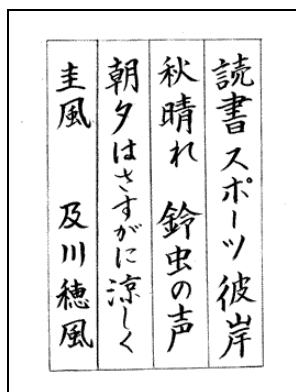 読書 スポーツ 彼岸
秋晴れ 鈴虫の声
朝夕はさすがに涼しく
圭風 及川穂風